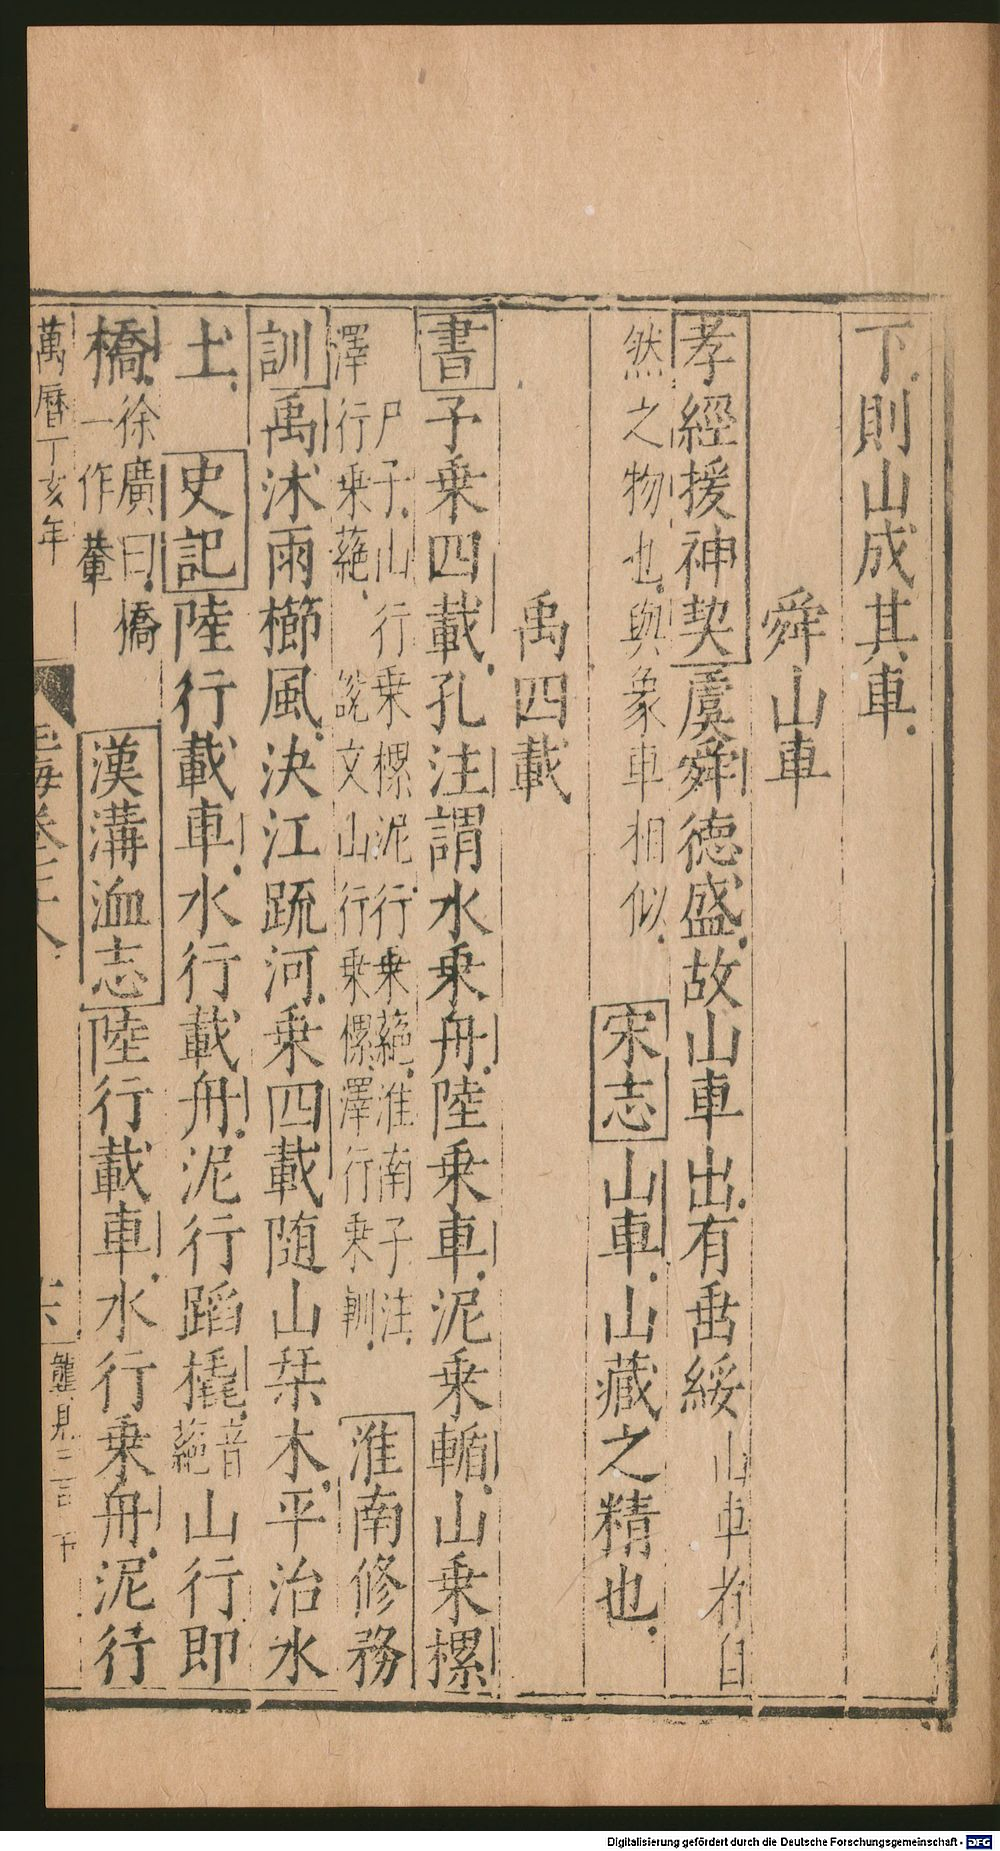 下則山成其車
舜山車
孝經援神契虞舜德盛故山車出有垂綏山車者自
然之物也與象車相似宋志山車山藏之精也
禹四載
書予乗四載孔注謂水乗舟陸乗車泥乗輴山乗樏
尸子山行乗樏泥行乗蕝淮南子注
澤行乗蕝說文山行乗樏澤行乗𨋢淮南修務
訓禹沐雨櫛風決江疏河乗四載随山栞木平治水
土史記陸行載車水行載舟泥行蹈橇音蕝山行即
橋徐廣曰橋一作輂漢溝洫志陸行載車水行乗舟泥行
萬曆丁亥年
玉海卷七十八
Digitalisierung gefördert durch die Deutsche Forschungsgemeinschaft - DFG